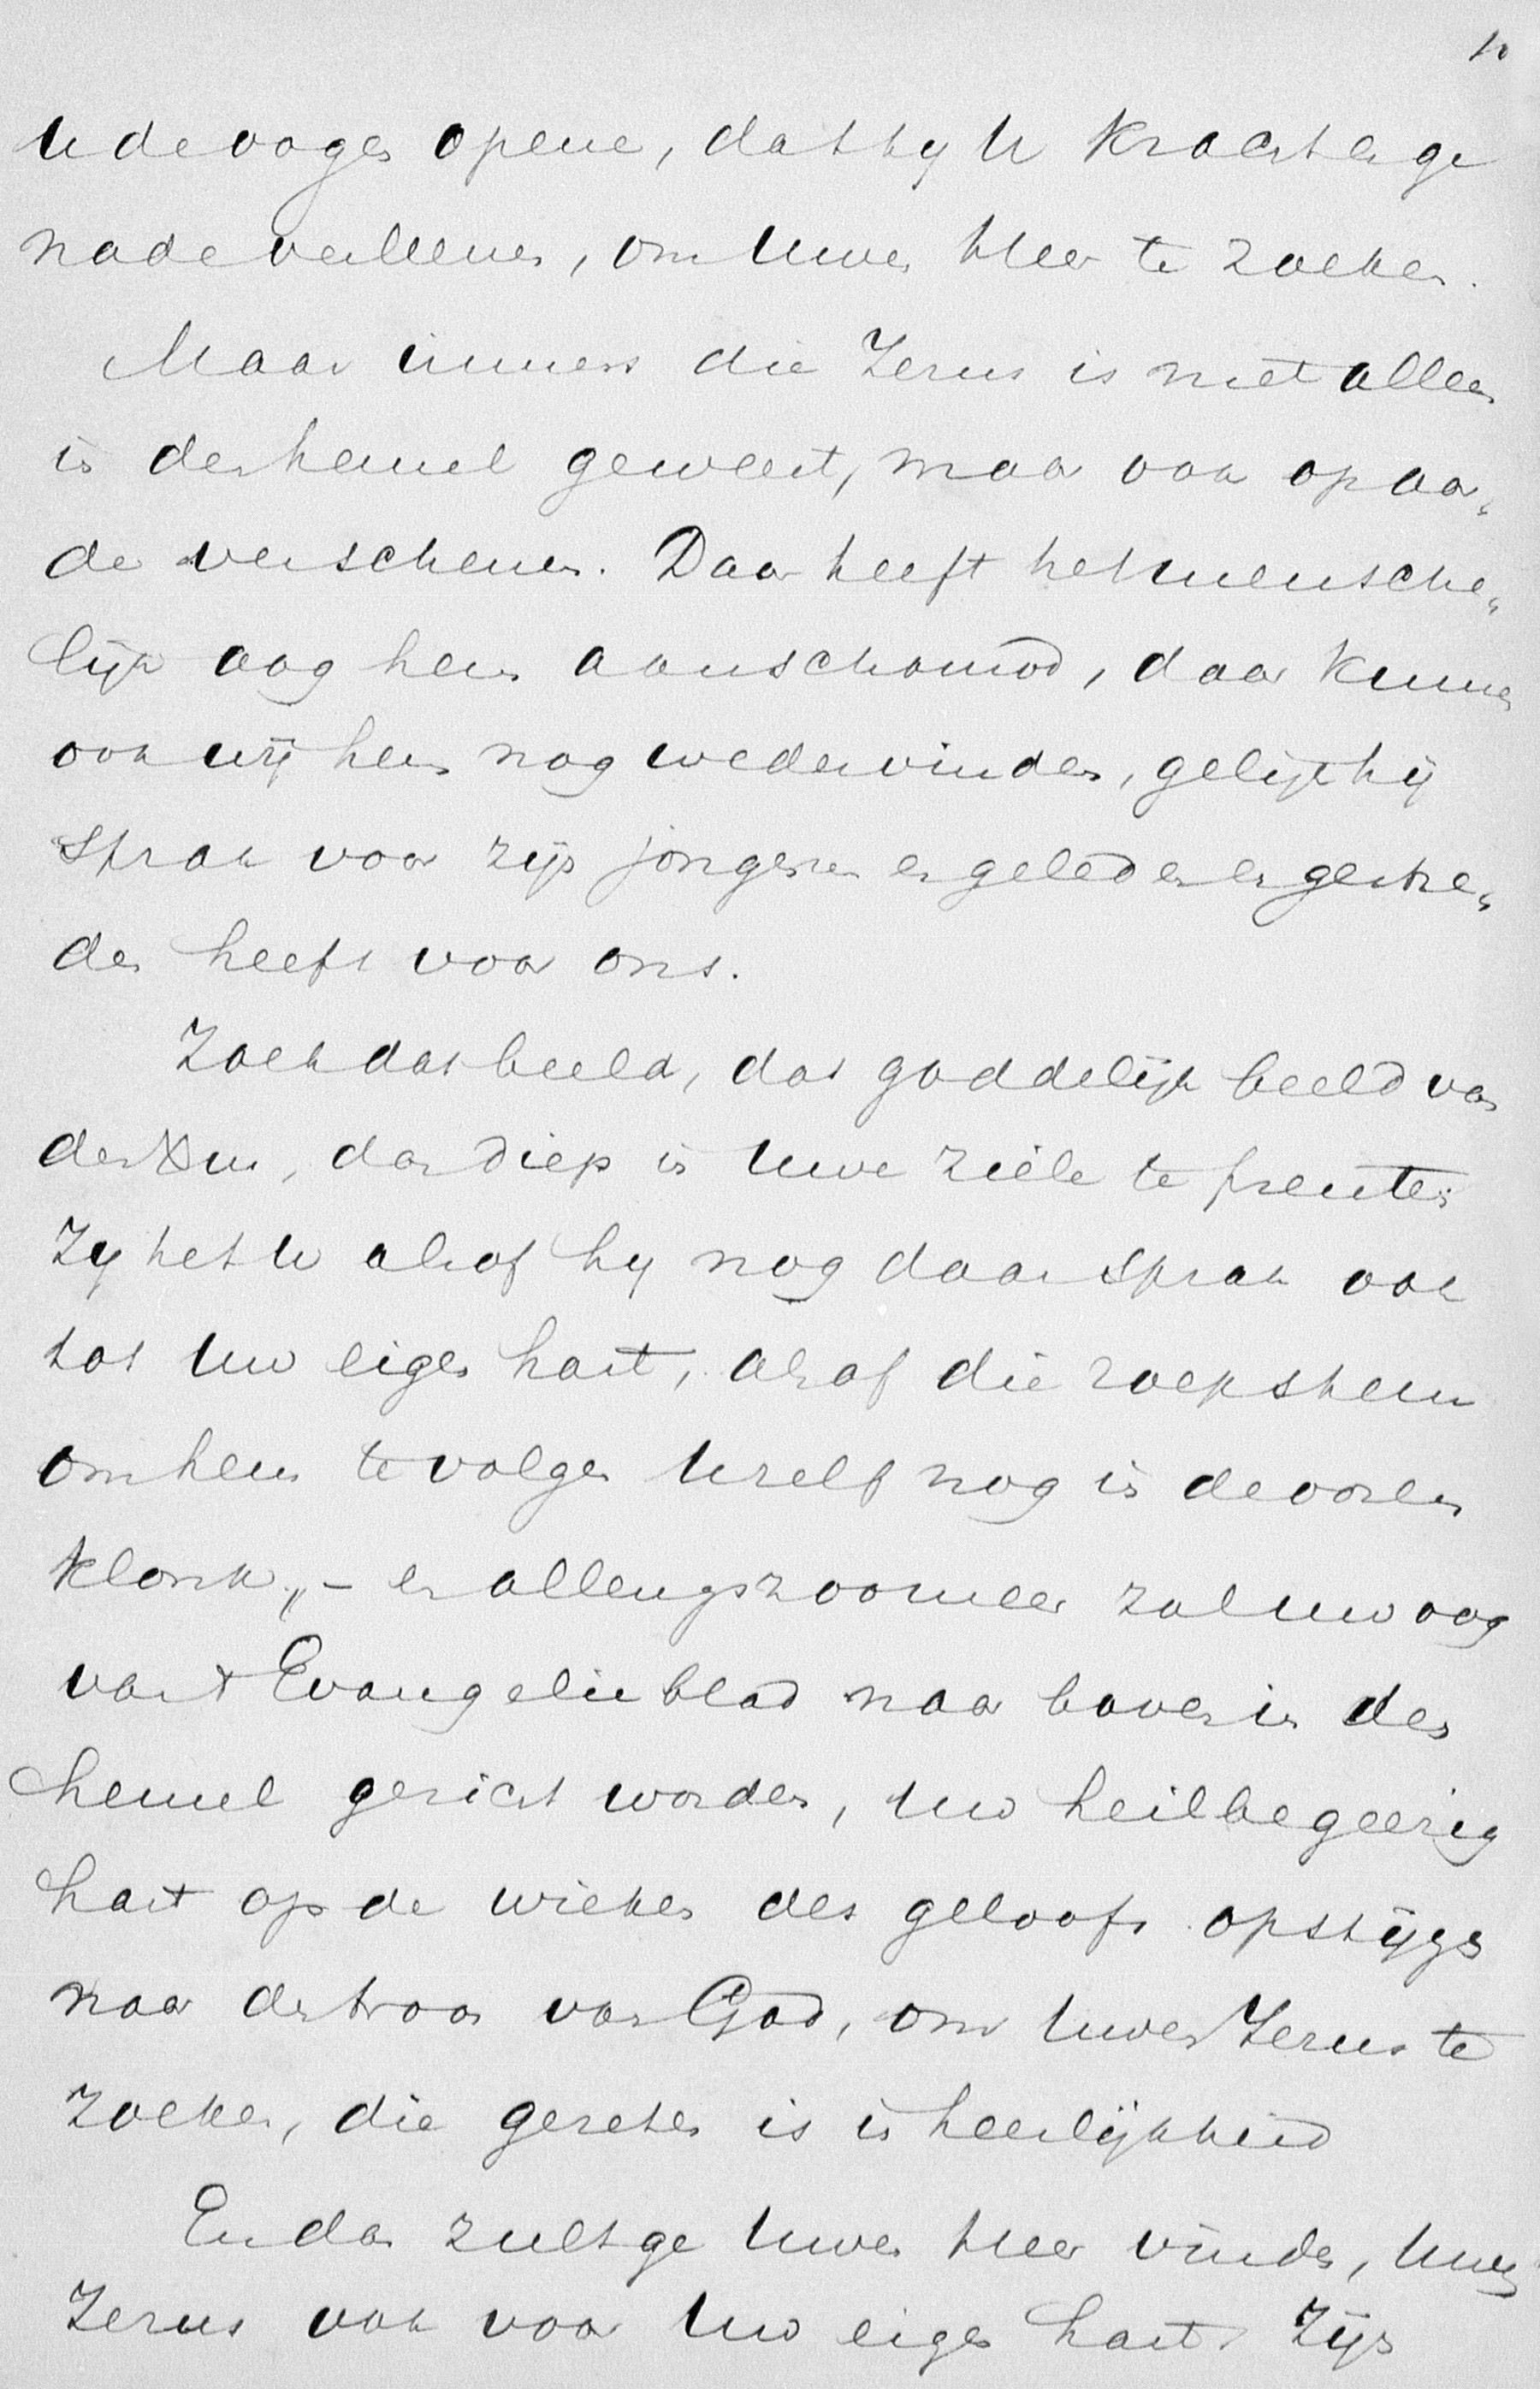 10
U de oogen opene, dat hy U kracht en ge
nade verleene, om Uwen Heer te zoeken.
Maar immers die Jezus is niet alleen
in den hemel geweest, maar ook op aar„
de verschenen. Daar heeft het mensche„
lijk oog hem aanschouwd, daar kunnen
ook wij hem nog wedervinden, gelijk hij
sprak voor zijn jongeren en geleden en gestre„
den heeft voor ons.
Zoek dat beeld, dat goddelijk beeld van
den Heer, dan diep in Uwe ziele te prenten
Zy het U alsof hy nog daar sprak ook
tot Uw eigen hart, alsof die roepstem
om hem te volgen Uzelf nog in de ooren
klonk, – en allengs zoomeer zal uw oog
van 't Evangelieblad naar boven in den
hemel gericht worden, Uw heilbegeerig
hart op de wieken des geloofs opstijgen
naar den troon van God, om Uwen Jezus te
zoeken, die gezeten is in heerlijkheid
En dan zult ge Uwen Heer vinden, Uwen
Jezus ook voor Uw eigen hart. Zijn